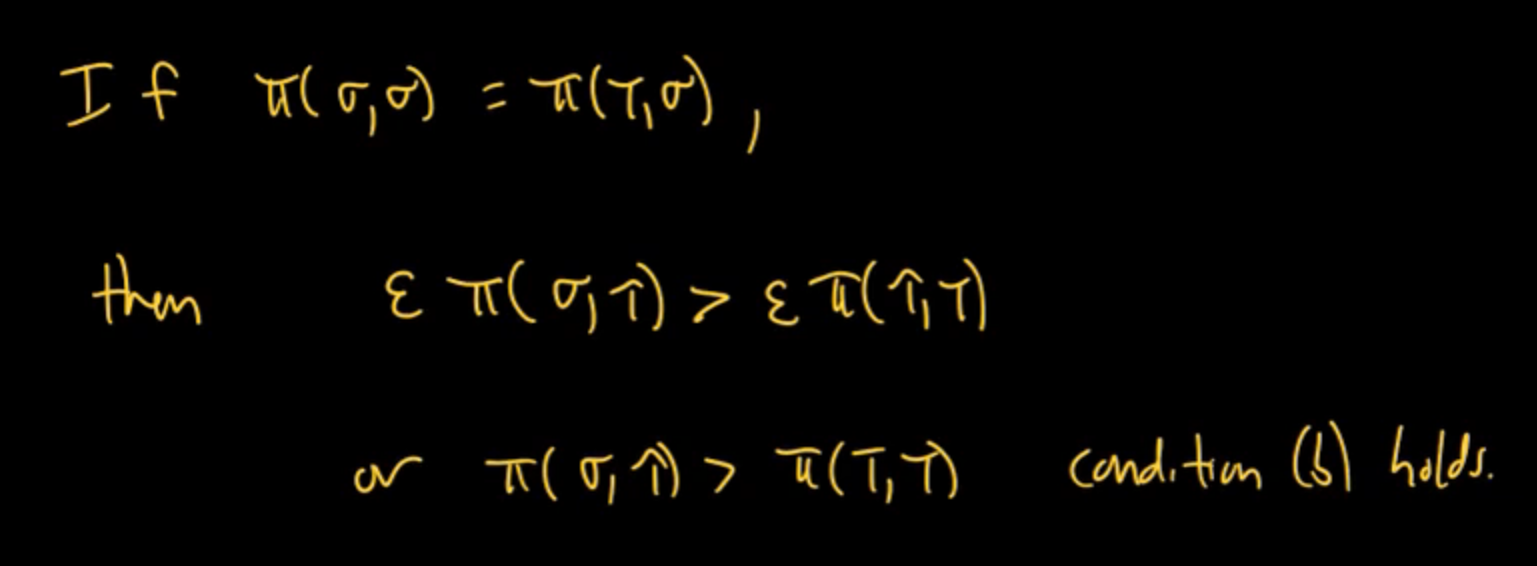 If π(σ,σ) = π(τ,σ),
then ε π(σ,τ) > ε π(τ,τ)
or π(σ,τ) > π(τ,τ) condition (b) holds.